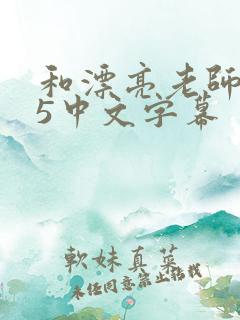 和漂亮老師
5中文字幕
軟妹真菜
未经同意禁止转载